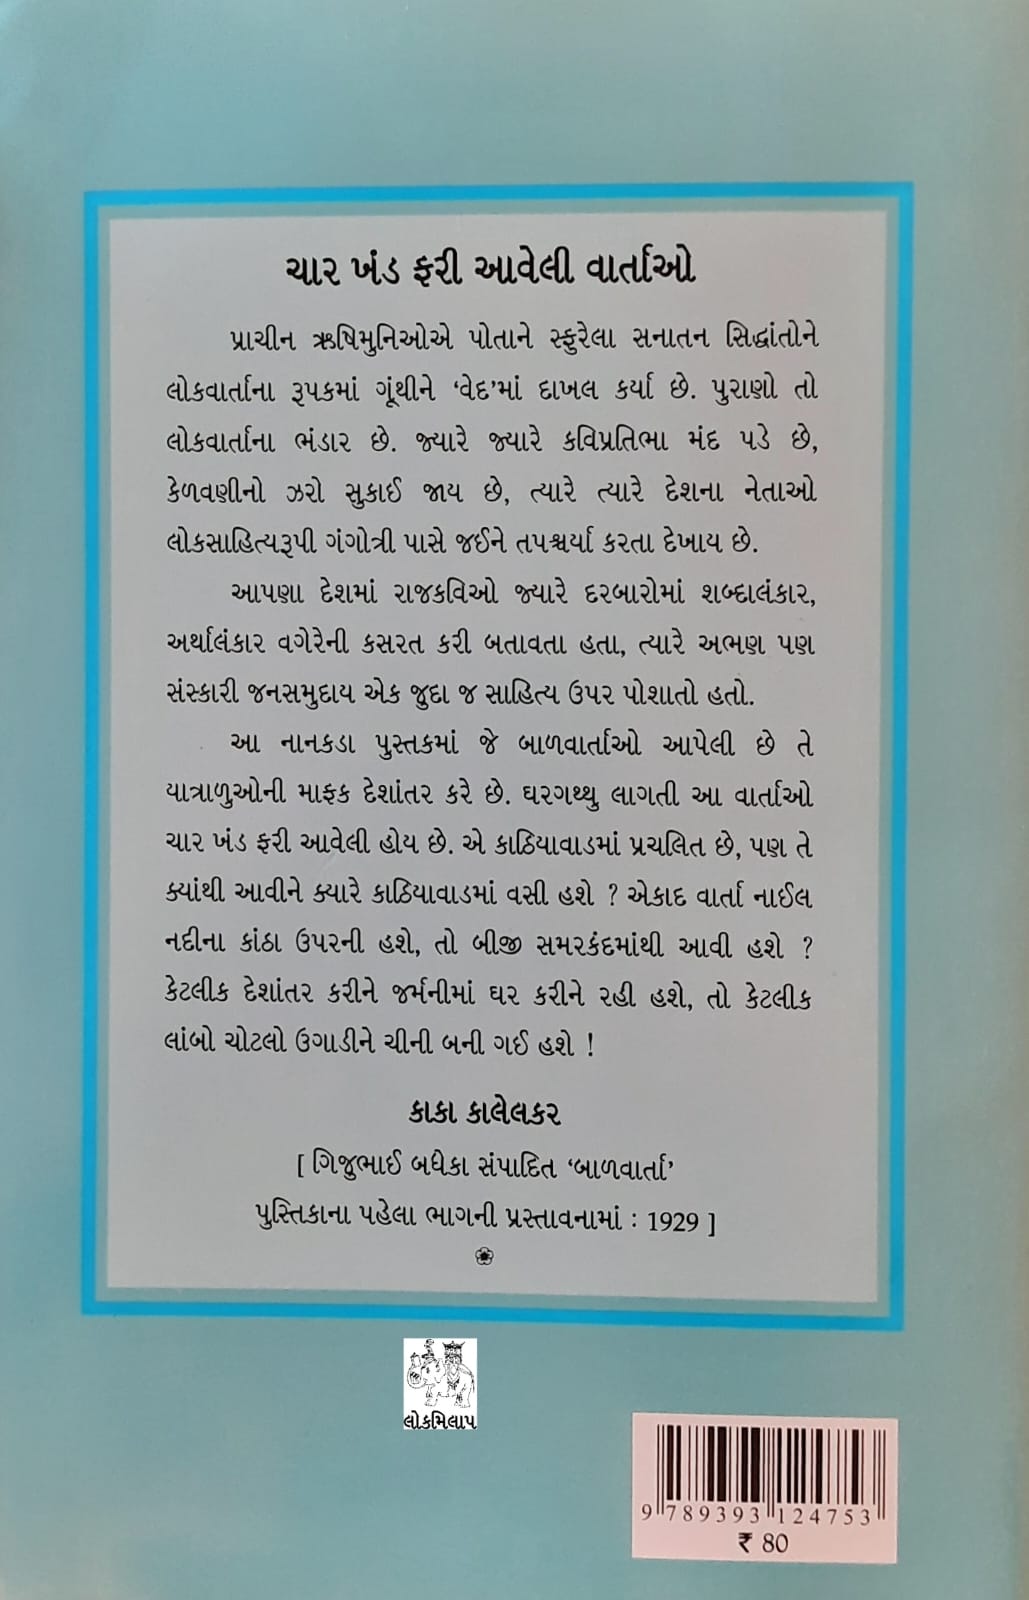 ચાર ખંડ ફરી આવેલી વાર્તાઓ
પ્રાચીન ઋષિમુનિઓએ પોતાને સ્ફુરેલા સનાતન સિદ્ધાંતોને
લોકવાર્તાના રૂપકમાં ગૂંથીને ‘વેદ’માં દાખલ કર્યા છે. પુરાણો તો
લોકવાર્તાના ભંડાર છે. જ્યારે જ્યારે કવિપ્રતિભા મંદ પડે છે,
કેળવણીનો ઝરો સુકાઈ જાય છે, ત્યારે ત્યારે દેશના નેતાઓ
લોકસાહિત્યરૂપી ગંગોત્રી પાસે જઈને તપશ્ચર્યા કરતા દેખાય છે.
આપણા દેશમાં રાજકવિઓ જ્યારે દરબારોમાં શબ્દાલંકાર,
અર્થાલંકાર વગેરેની કસરત કરી બતાવતા હતા, ત્યારે અભણ પણ
સંસ્કારી જનસમુદાય એક જુદા જ સાહિત્ય ઉપર પોશાતો હતો.
આ નાનકડા પુસ્તકમાં જે બાળવાર્તાઓ આપેલી છે તે
યાત્રાળુઓની માફક દેશાંતર કરે છે. ઘરગથ્થુ લાગતી આ વાર્તાઓ
ચાર ખંડ ફરી આવેલી હોય છે. એ કાઠિયાવાડમાં પ્રચલિત છે, પણ તે
ક્યાંથી આવીને ક્યારે કાઠિયાવાડમાં વસી હશે ? એકાદ વાર્તા નાઈલ
નદીના કાંઠા ઉપરની હશે, તો બીજી સમરકંદમાંથી આવી હશે ?
કેટલીક દેશાંતર કરીને જર્મનીમાં ઘર કરીને રહી હશે, તો કેટલીક
લાંબો ચોટલો ઉગાડીને ચીની બની ગઈ હશે !
કાકા કાલેલકર
[ ગિજુભાઈ બધેકા સંપાદિત ‘બાળવાર્તા’
પુસ્તિકાના પહેલા ભાગની પ્રસ્તાવનામાં : 1929 ]
લોકમિલાપ
9 789393 124753
₹ 80